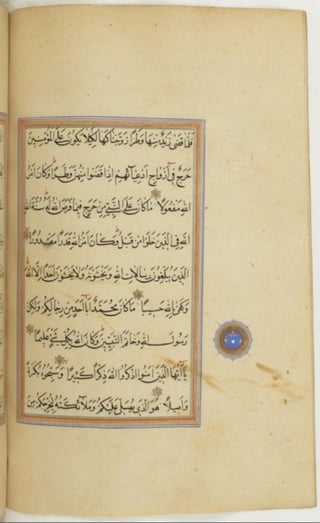 فَلَمَّا قَضَىٰ زَيْدٌ مِنْهَا وَطَرًا زَوَّجْنَاكَهَا لِكَيْلَا يَكُونَ عَلَى الْمُؤْمِنِينَ
حَرَجٌ فِي أَزْوَاجِ أَدْعِيَائِهِمْ إِذَا قَضَوْا مِنْهُنَّ وَطَرًا وَكَانَ أَمْرُ
اللهِ مَفْعُولًا مَا كَانَ عَلَى النَّبِيِّ مِنْ حَرَجٍ فِيمَا فَرَضَ اللهُ لَهُ سُنَّةَ اللهِ
اللهِ فِي الَّذِينَ خَلَوْا مِنْ قَبْلُ وَكَانَ أَمْرُ اللهِ قَدَرًا مَقْدُورًا
الَّذِينَ يُبَلِّغُونَ رِسَالَاتِ اللهِ وَيَخْشَوْنَهُ وَلَا يَخْشَوْنَ أَحَدًا إِلَّا اللهَ
وَكَفَىٰ بِاللهِ حَسِيبًا مَا كَانَ مُحَمَّدٌ أَبَا أَحَدٍ مِنْ رِجَالِكُمْ وَلَٰكِنْ
رَسُولَ اللهِ وَخَاتَمَ النَّبِيِّينَ وَكَانَ اللهُ بِكُلِّ شَيْءٍ عَلِيمًا
يَا أَيُّهَا الَّذِينَ آمَنُوا اذْكُرُوا اللهَ ذِكْرًا كَثِيرًا وَسَبِّحُوهُ بُكْرَةً
وَأَصِيلًا هُوَ الَّذِي يُصَلِّي عَلَيْكُمْ وَمَلَائِكَتُهُ لِيُخْرِجَكُمْ مِنَ